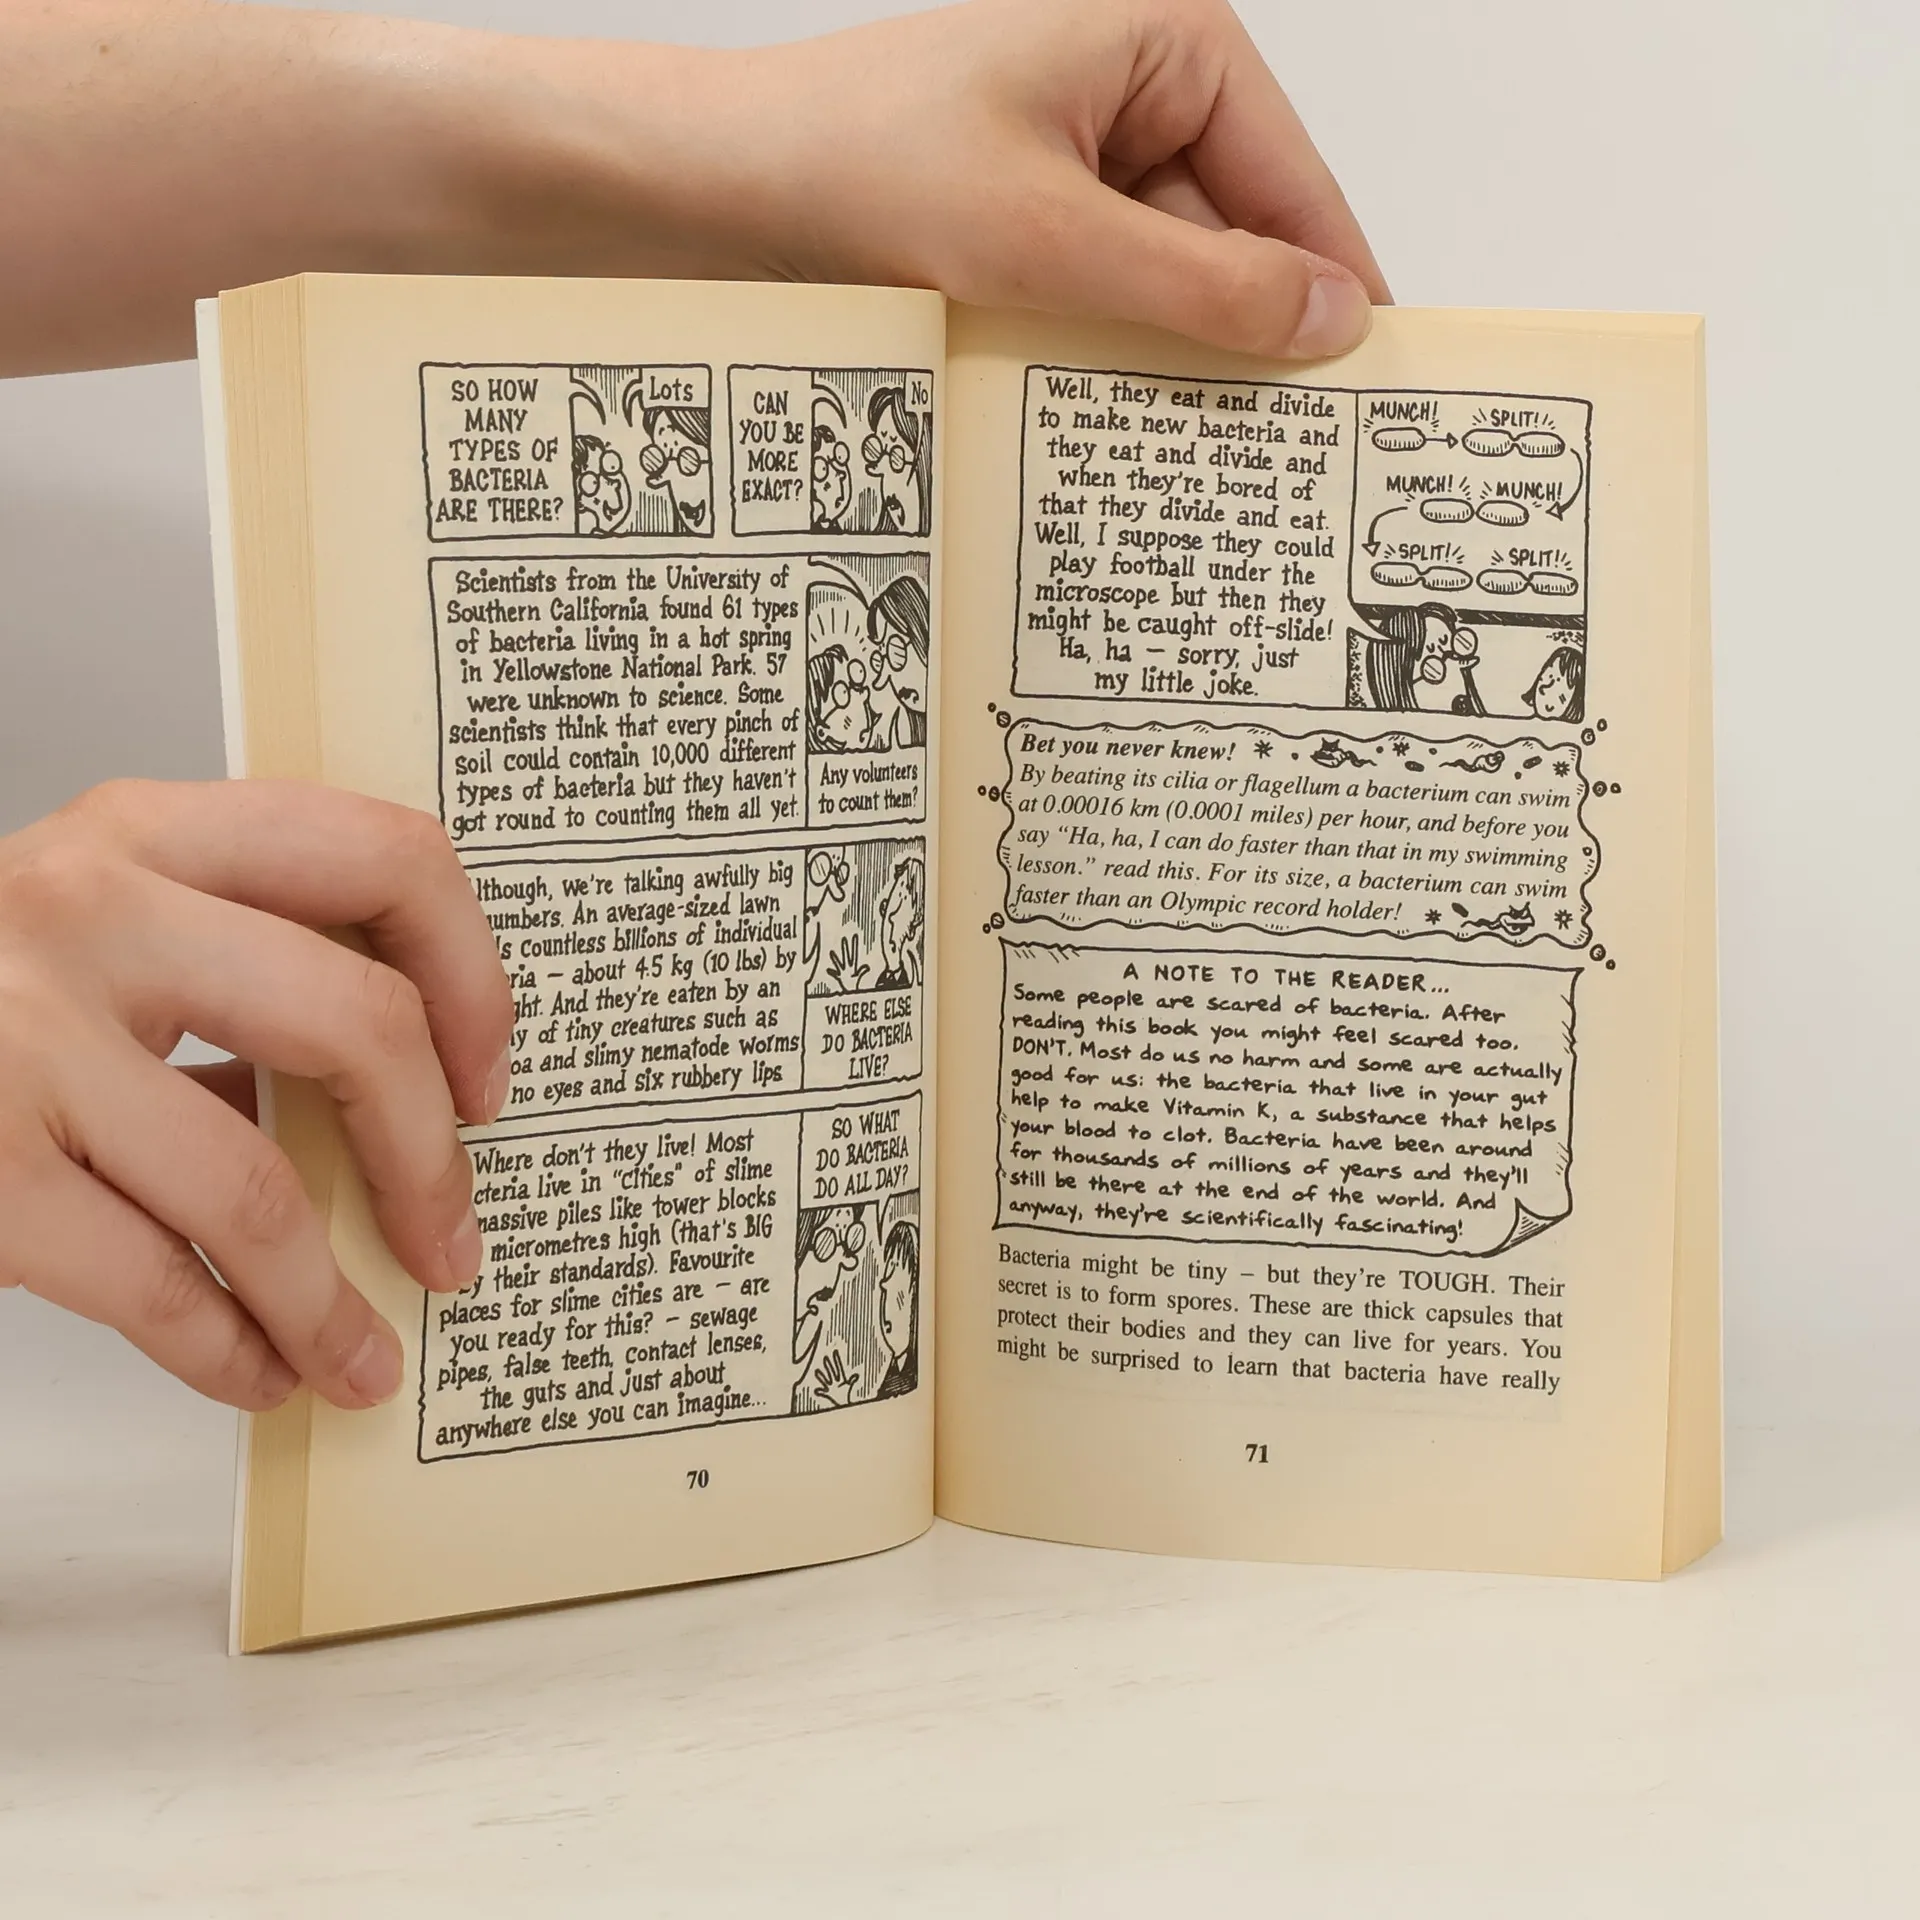 SO HOW
MANY
TYPES OF
BACTERIA
ARE THERE?
Lots
CAN
YOU BE
MORE
EXACT?
No
Scientists from the University of
Southern California found 61 types
of bacteria living in a hot spring
in Yellowstone National Park. 57
were unknown to science. Some
scientists think that every pinch of
soil could contain 10,000 different
types of bacteria but they haven't
got round to counting them all yet.
Any volunteers
to count them?
we're talking awfully big
An average-sized lawn
countless billions of individual
– about 4.5 kg (10 lbs) by
And they're eaten by an
of tiny creatures such as
and slimy nematode worms
no eyes and six rubbery lips
WHERE ELSE
DO BACTERIA
LIVE?
Where don't they live! Most
live in "cities" of slime
piles like tower blocks
micrometres high (that's BIG
their standards). Favourite
places for slime cities are – are
you ready for this? – sewage
pipes, false teeth, contact lenses,
the guts and just about
anywhere else you can imagine...
SO WHAT
DO BACTERIA
DO ALL DAY?
70
Well, they eat and divide
to make new bacteria and
they eat and divide and
when they're bored of
that they divide and eat.
Well, I suppose they could
play football under the
microscope but then they
might be caught off-slide!
Ha, ha – sorry, just
my little joke.
MUNCH!
SPLIT!
MUNCH!
MUNCH!
SPLIT!
SPLIT!
Bet you never knew!
By beating its cilia or flagellum a bacterium can swim
at 0.00016 km (0.0001 miles) per hour, and before you
say "Ha, ha, I can do faster than that in my swimming
lesson." read this. For its size, a bacterium can swim
faster than an Olympic record holder!
A NOTE TO THE READER...
Some people are scared of bacteria. After
reading this book you might feel scared too.
DON'T. Most do us no harm and some are actually
good for us: the bacteria that live in your gut
help to make Vitamin K, a substance that helps
your blood to clot. Bacteria have been around
for thousands of millions of years and they'll
still be there at the end of the world. And
anyway, they're scientifically fascinating!
Bacteria might be tiny – but they're TOUGH. Their
secret is to form spores. These are thick capsules that
protect their bodies and they can live for years. You
might be surprised to learn that bacteria have really
71